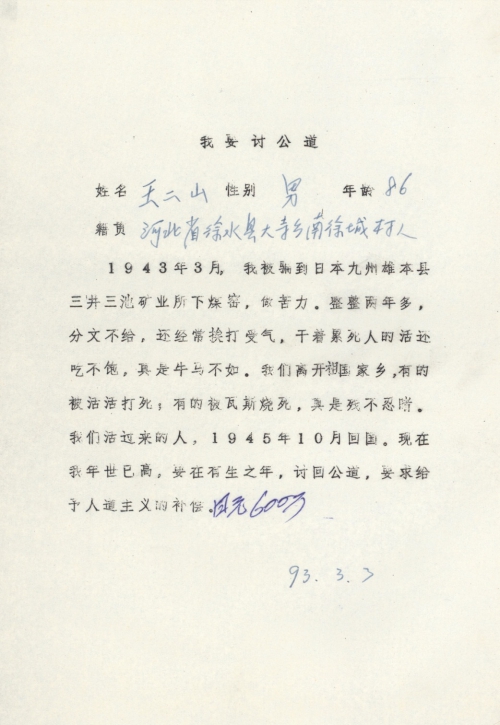 我要讨公道
姓名 王二山 性别 男 年龄 86
籍贯 河北省徐水县大寺乡南徐城村人
1943年3月，我被骗到日本九州雄本县
三井三池矿业所下煤窑，做苦力。整整两年多，
分文不给，还经常挨打受气，干着累死人的活还
吃不饱，真是牛马不如。我们离开祖国家乡，有的
被活活打死；有的被瓦斯烧死，真是残不忍睹。
我们活过来的人，1945年10月回国。现在
我年世已高，要在有生之年，讨回公道，要求给
予人道主义的补偿。日元600万
93.3.3